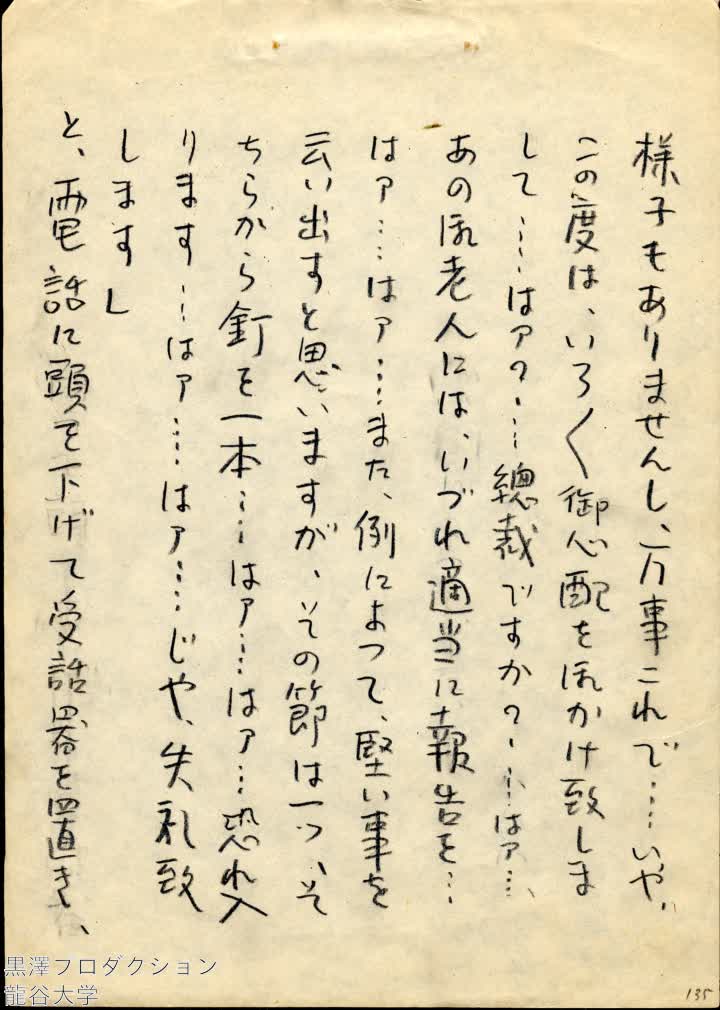 様子もありませんし、万事これで……いや、
この度は、いろ〱御心配をおかけ致しま
して……はァ?……總裁ですか?……はァ……、
あのお老人には、いづれ適当に報告を……
はァ……はァ……また、例によって、堅い事を
云い出すと思いますが、その節は一つ、そ
ちらから釘を一本……はァ……はァ……恐れ入
ります……はァ……はァ……じゃ、失礼致
します」
と、電話に頭を下げて受話器を置き、
黒澤プロダクション
龍谷大学
135